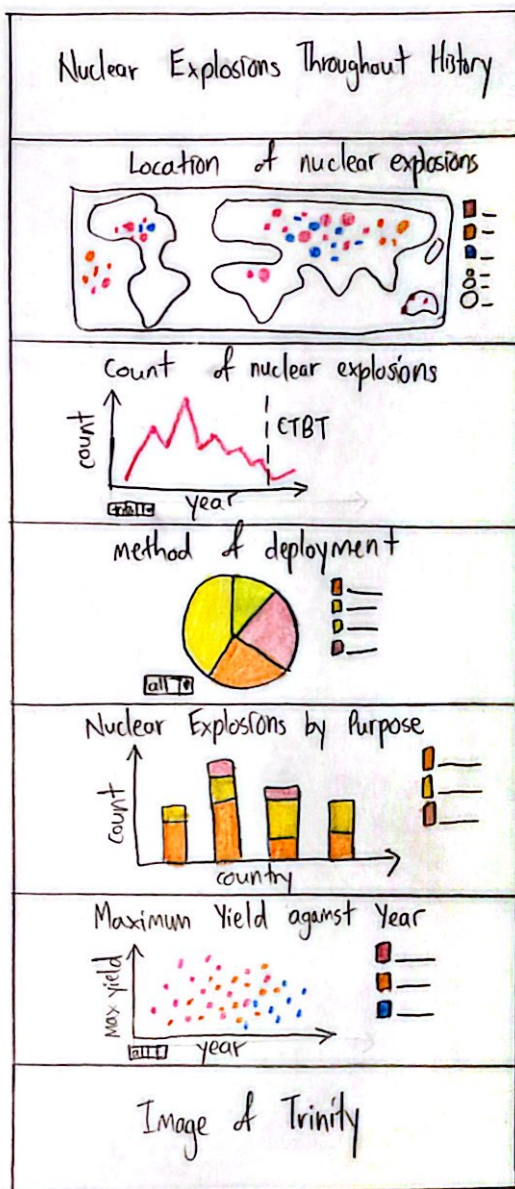 Nuclear Explosions Throughout History
Location of nuclear explosions
Count of nuclear explosions
count
CTBT
year
method of deployment
all
Nuclear Explosions by Purpose
count
country
Maximum Yield against Year
Max yield
all
year
Image of Trinity